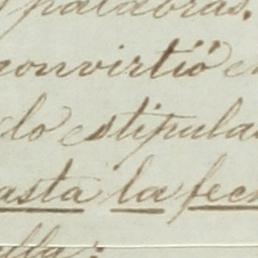 palabras.
convirtió e
do estipula
asta la fec
lla: